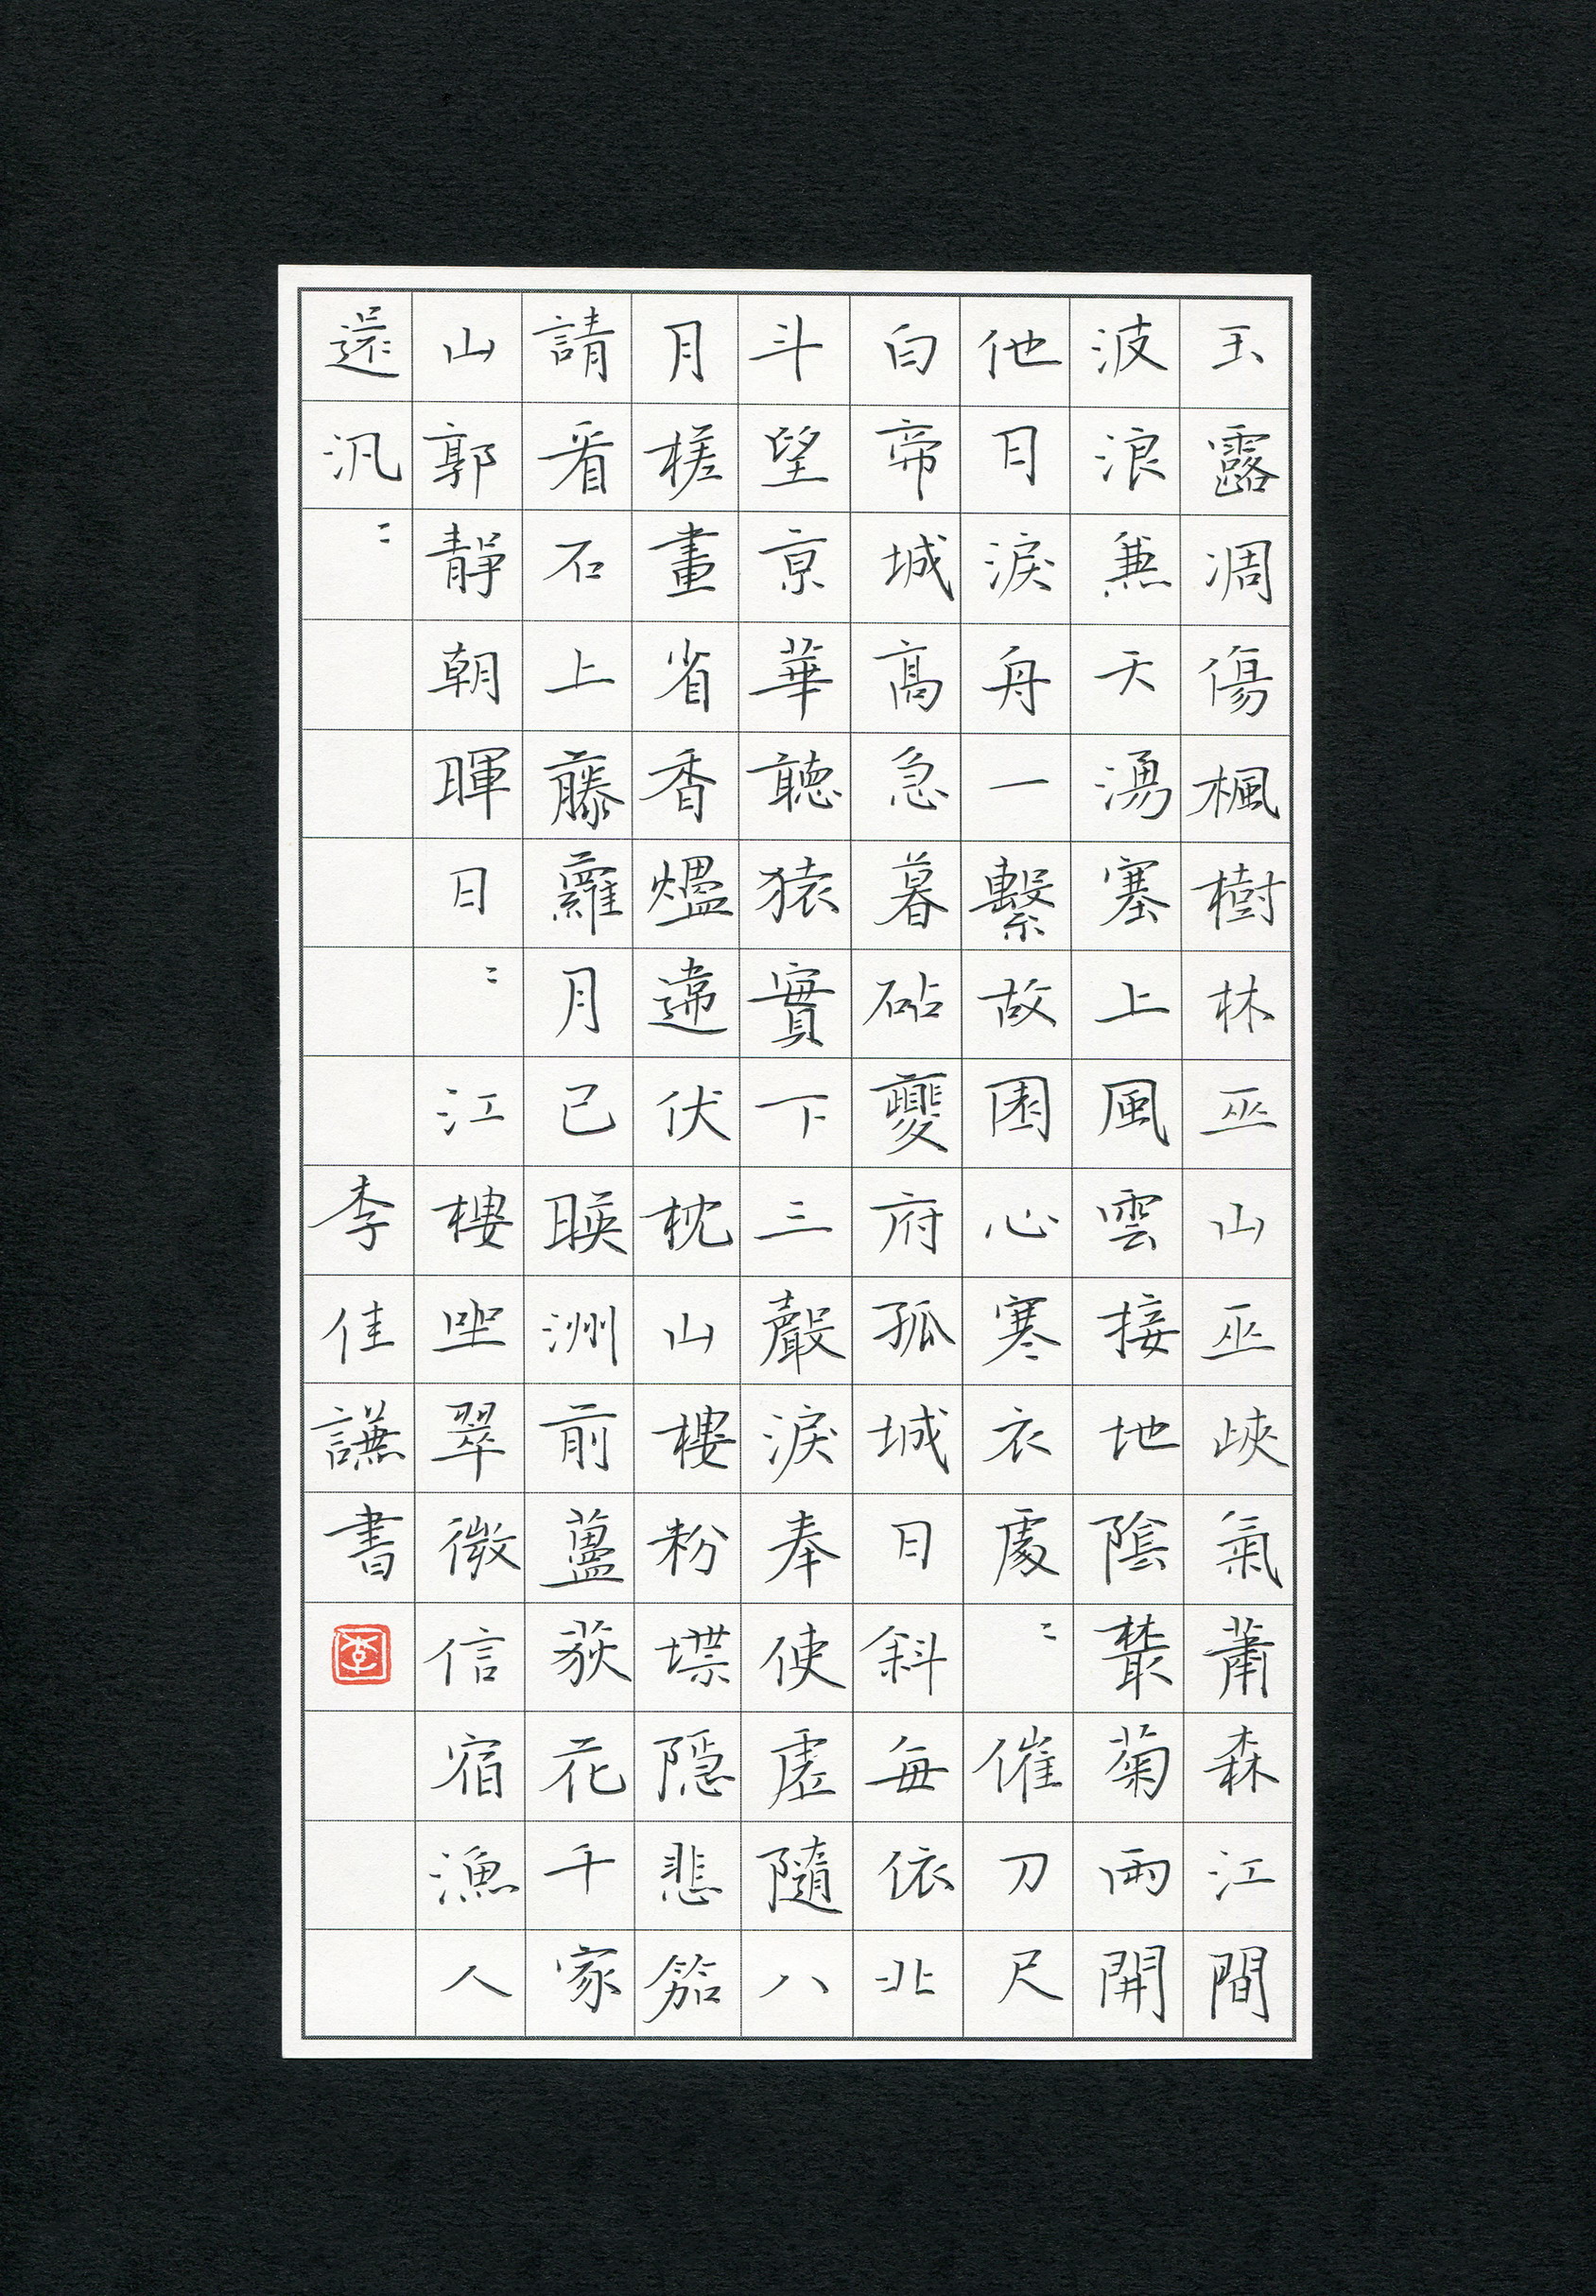 玉露凋傷楓樹林巫山巫峽氣蕭森江間
波浪兼天湧塞上風雲接地陰叢菊兩開
他日淚舟一繫故園心寒衣處〻催刀尺
白帝城高急暮砧夔府孤城日斜每依北
斗望京華聽猿實下三聲淚奉使虛隨八
月槎畫省香爐違伏枕山樓粉堞隱悲笳
請看石上藤蘿月已暎洲前蘆荻花千家
山郭靜朝暉日〻江樓坐翠微信宿漁人
還汎〻
李佳謙書
李